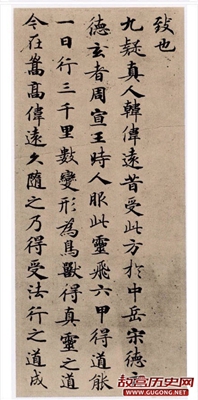 致也
九疑真人韓偉遠昔受此方於中岳宋德玄
德玄者周宣王時人服此靈飛六甲得道能
一日行三千里數變形為鳥獸得真靈之道
今在嵩高偉遠久隨之乃得受法行之道成
故宫历史网